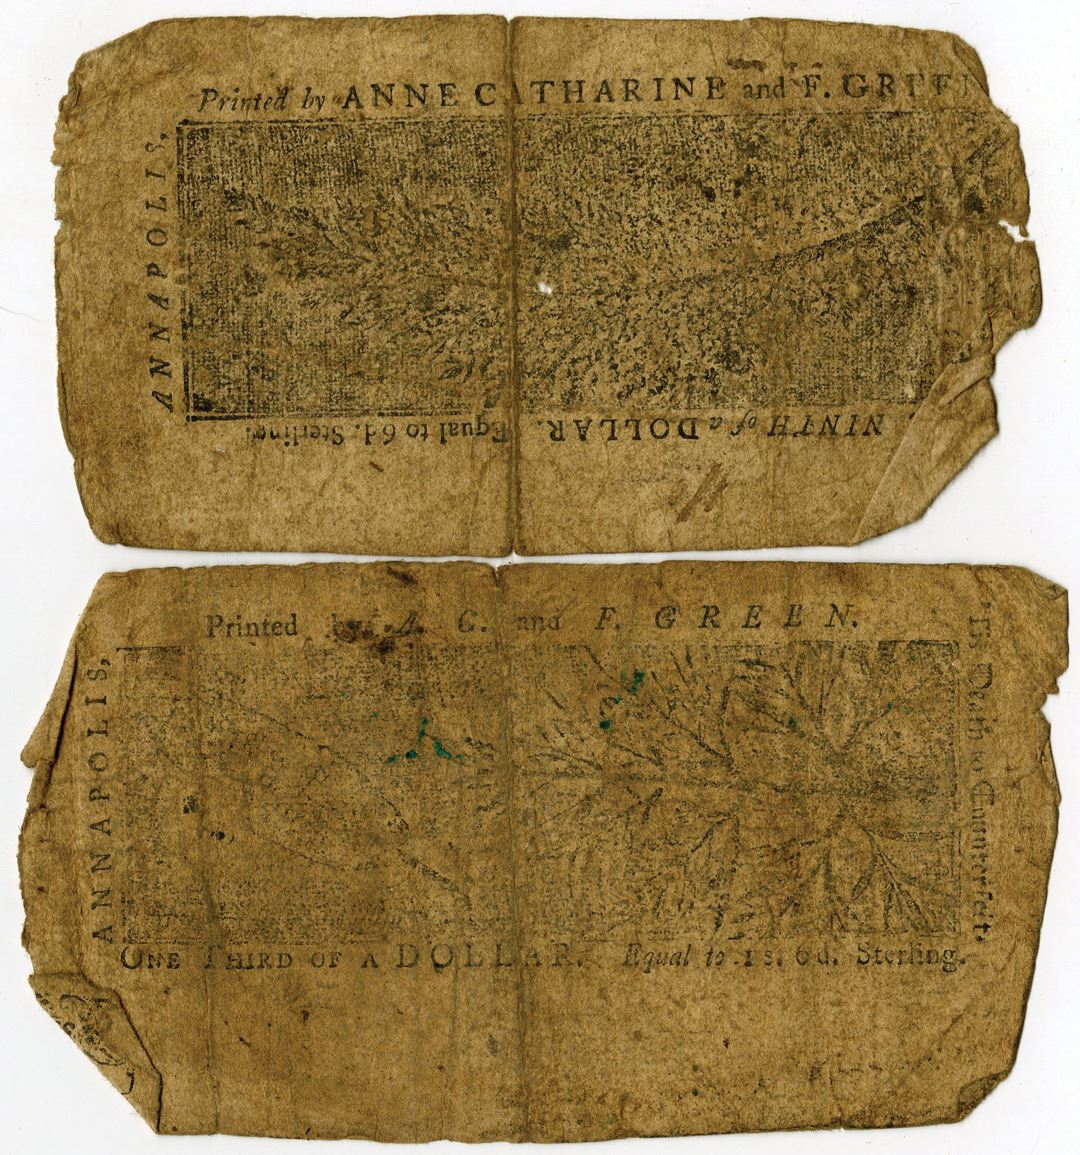 Printed by ANNE CATHARINE and F. GREEN
ANNAPOLIS,
NINTH of a DOLLAR. Equal to 6d. Sterling
Printed by A. C. and F. GREEN.
ANNAPOLIS,
'Tis Death to Counterfeit.
ONE THIRD OF A DOLLAR. Equal to 1s. 6d. Sterling.